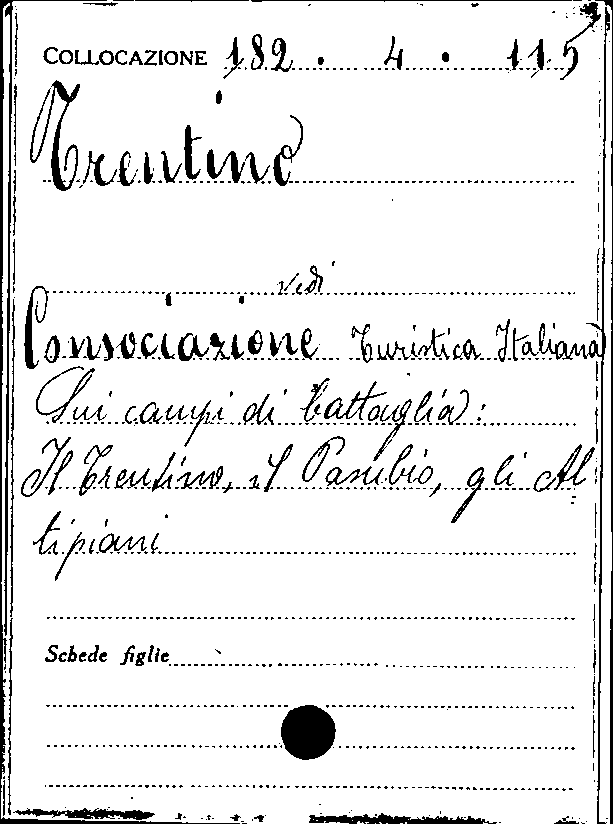 COLLOCAZIONE 182 . 4 . 115
Trentino
vedi
Consociazione Turistica Italiana
Sui campi di battaglia:
Il Trentino, il Pasubio, gli Al
tipiani
Schede figlie